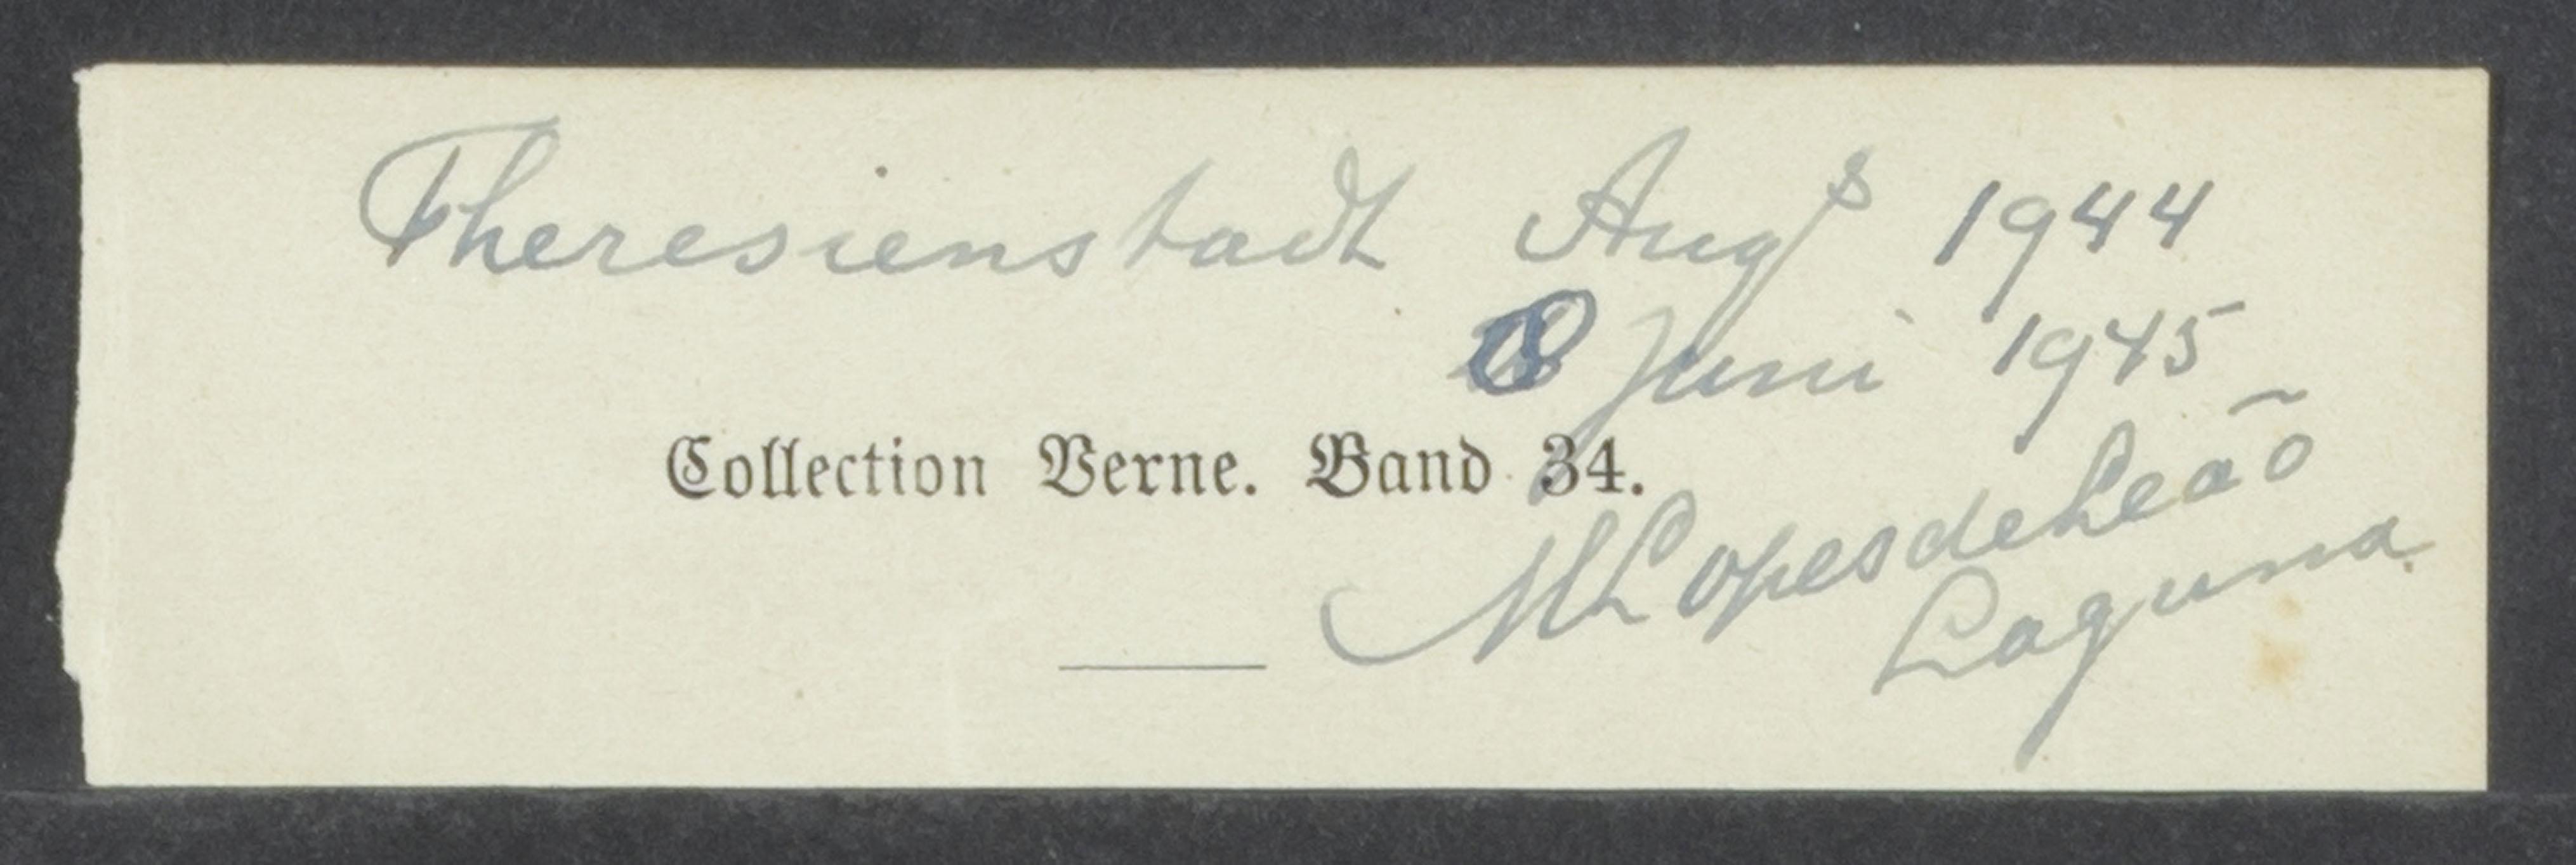 Theresienstadt Augs 1944
8 Juni 1945
Collection Verne. Band 34.
M Lopes de Leaõ
Laguna